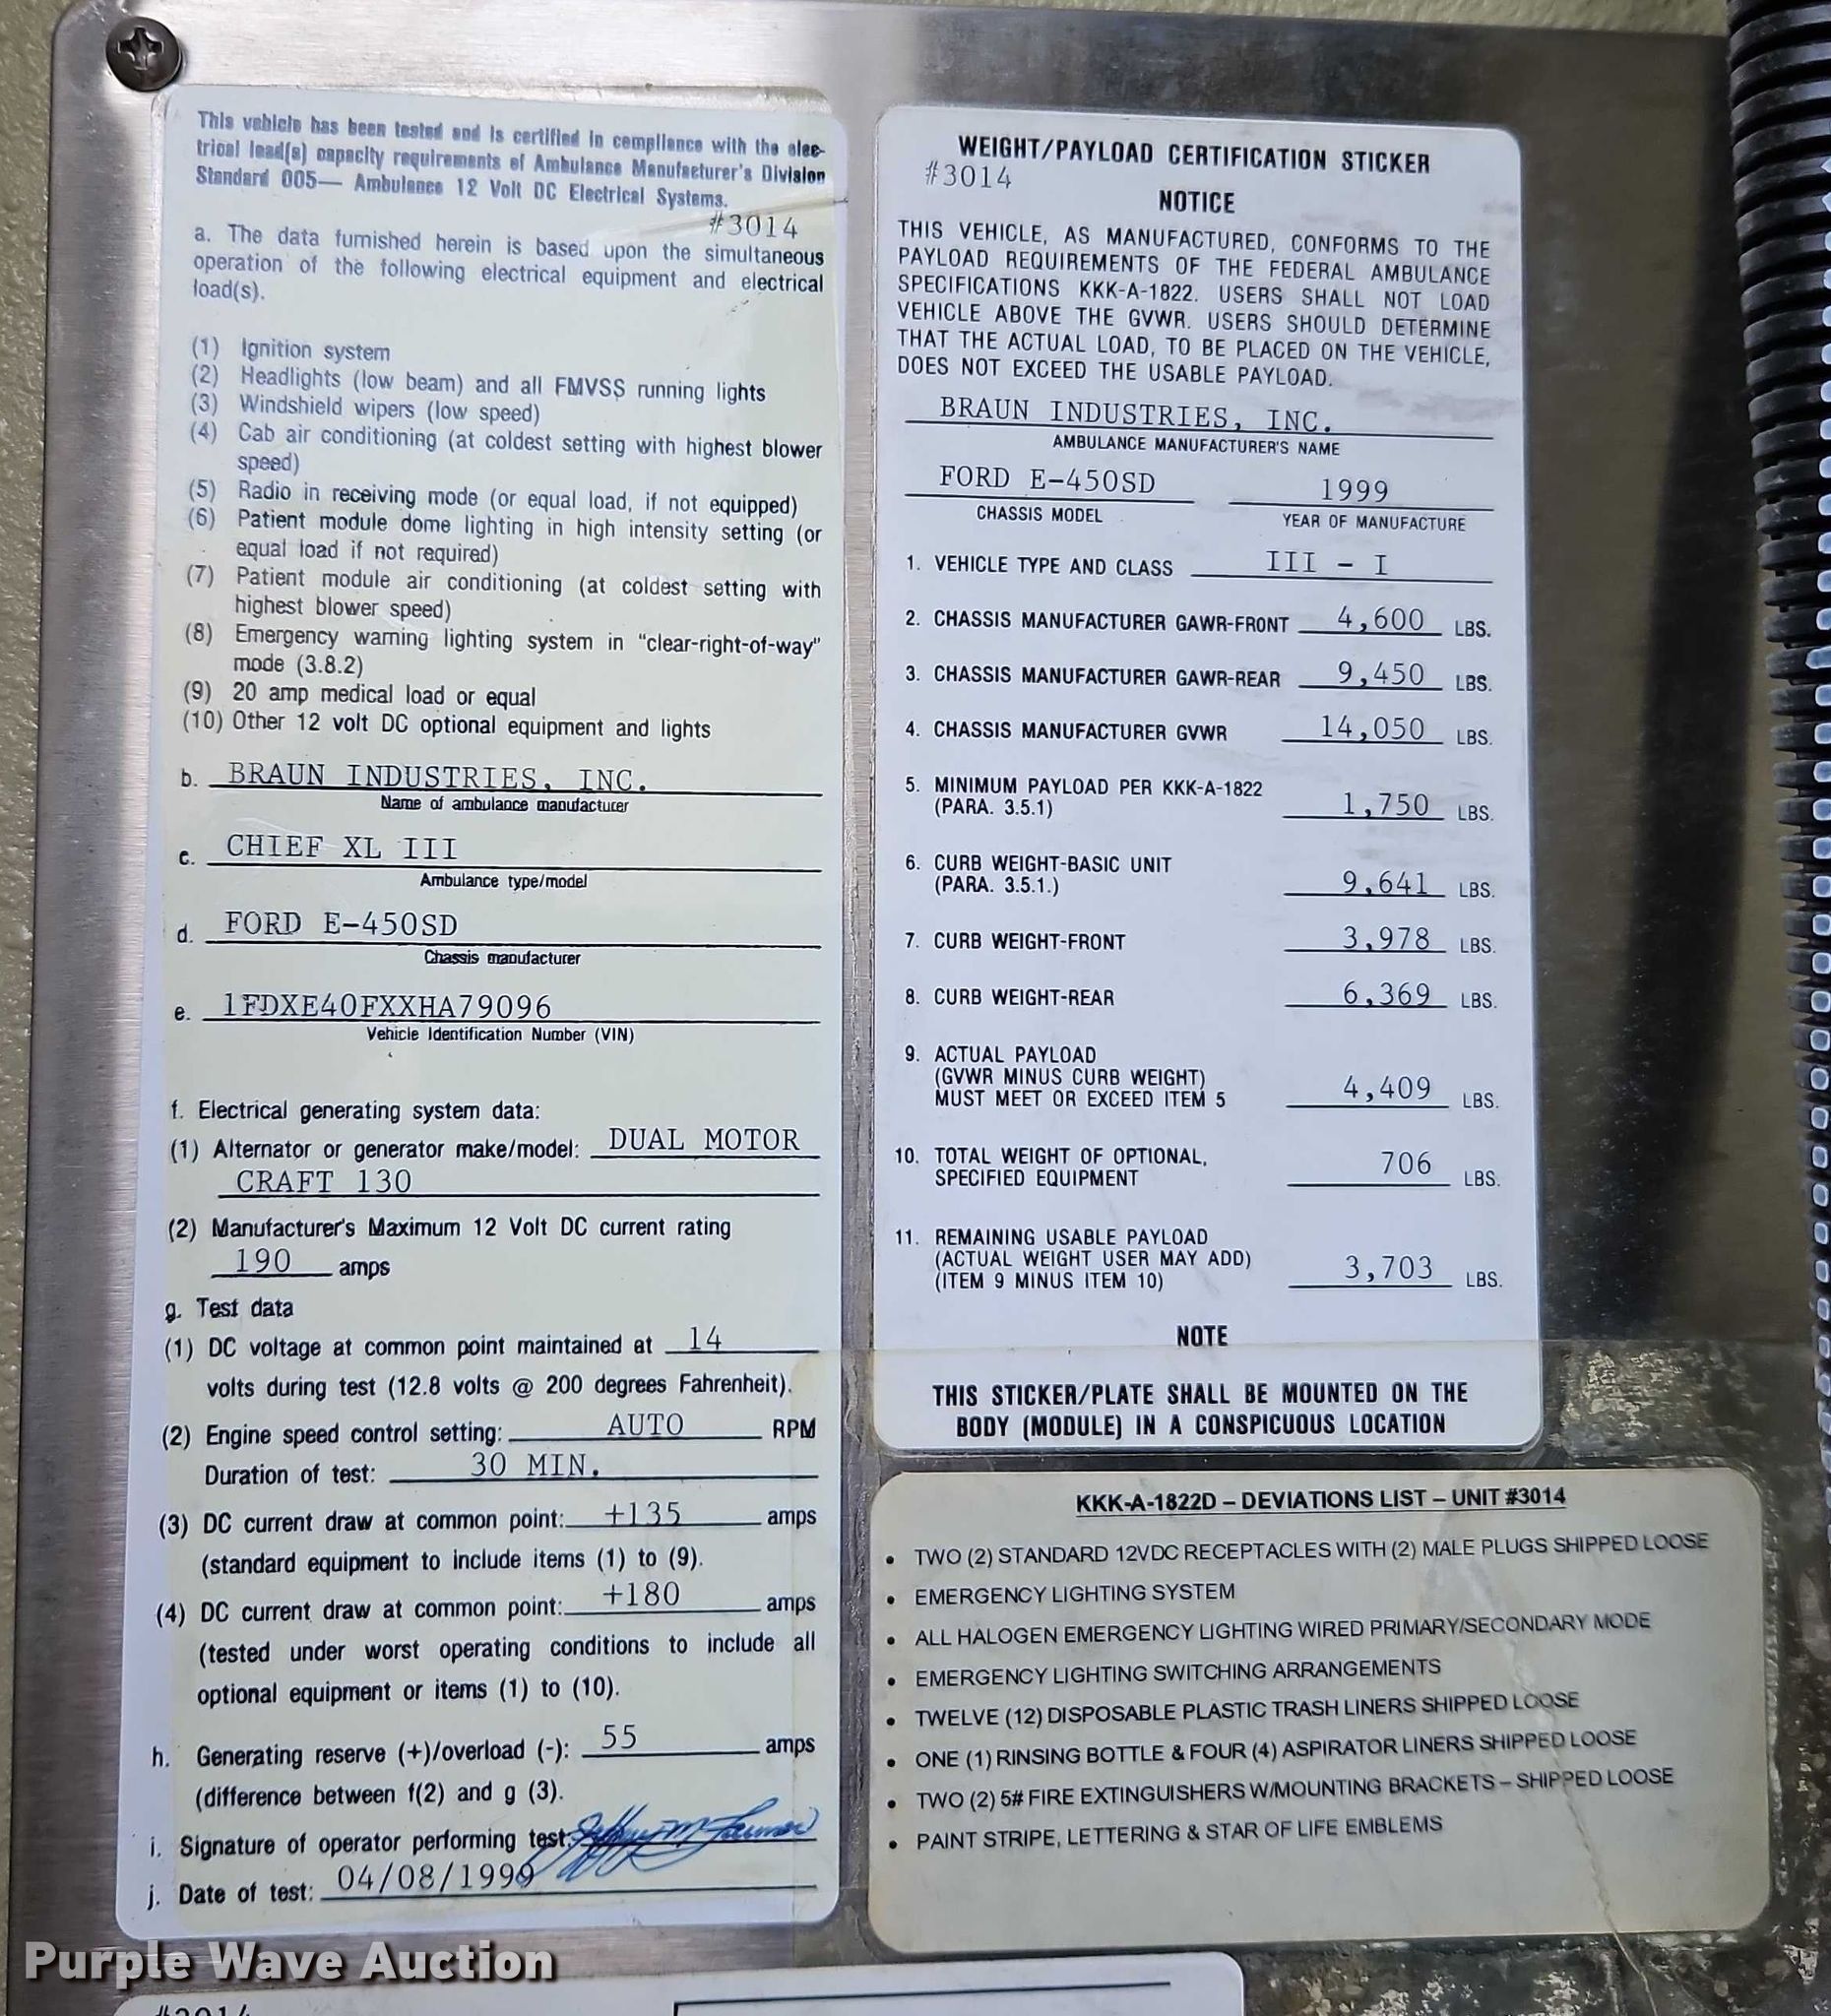 This vehicle has been tested and is certified in compliance with the elec-
trical load(s) capacity requirements of Ambulance Manufacturer's Division
Standard 005— Ambulance 12 Volt DC Electrical Systems.
#3014
a. The data furnished herein is based upon the simultaneous
operation of the following electrical equipment and electrical
load(s).
(1) Ignition system
(2) Headlights (low beam) and all FMVSS running lights
(3) Windshield wipers (low speed)
(4) Cab air conditioning (at coldest setting with highest blower
speed)
(5) Radio in receiving mode (or equal load, if not equipped)
(6) Patient module dome lighting in high intensity setting (or
equal load if not required)
(7) Patient module air conditioning (at coldest setting with
highest blower speed)
(8) Emergency warning lighting system in "clear-right-of-way"
mode (3.8.2)
(9) 20 amp medical load or equal
(10) Other 12 volt DC optional equipment and lights
b. BRAUN INDUSTRIES, INC.
Name of ambulance manufacturer
c. CHIEF XL III
Ambulance type/model
d. FORD E-450SD
Chassis manufacturer
e. 1FDXE40FXXHA79096
Vehicle Identification Number (VIN)
f. Electrical generating system data:
(1) Alternator or generator make/model: DUAL MOTOR
CRAFT 130
(2) Manufacturer's Maximum 12 Volt DC current rating
190 amps
g. Test data
(1) DC voltage at common point maintained at 14
volts during test (12.8 volts @ 200 degrees Fahrenheit).
(2) Engine speed control setting: AUTO RPM
Duration of test: 30 MIN.
(3) DC current draw at common point: +135 amps
(standard equipment to include items (1) to (9).
(4) DC current draw at common point: +180 amps
(tested under worst operating conditions to include all
optional equipment or items (1) to (10).
h. Generating reserve (+)/overload (-): 55 amps
(difference between f(2) and g (3).
i. Signature of operator performing test:
j. Date of test: 04/08/1999
WEIGHT/PAYLOAD CERTIFICATION STICKER
#3014
NOTICE
THIS VEHICLE, AS MANUFACTURED, CONFORMS TO THE
PAYLOAD REQUIREMENTS OF THE FEDERAL AMBULANCE
SPECIFICATIONS KKK-A-1822. USERS SHALL NOT LOAD
VEHICLE ABOVE THE GVWR. USERS SHOULD DETERMINE
THAT THE ACTUAL LOAD, TO BE PLACED ON THE VEHICLE,
DOES NOT EXCEED THE USABLE PAYLOAD.
BRAUN INDUSTRIES, INC.
AMBULANCE MANUFACTURER'S NAME
FORD E-450SD 1999
CHASSIS MODEL YEAR OF MANUFACTURE
1. VEHICLE TYPE AND CLASS III - I
2. CHASSIS MANUFACTURER GAWR-FRONT 4,600 LBS.
3. CHASSIS MANUFACTURER GAWR-REAR 9,450 LBS.
4. CHASSIS MANUFACTURER GVWR 14,050 LBS.
5. MINIMUM PAYLOAD PER KKK-A-1822
(PARA. 3.5.1) 1,750 LBS.
6. CURB WEIGHT-BASIC UNIT
(PARA. 3.5.1.) 9,641 LBS.
7. CURB WEIGHT-FRONT 3,978 LBS.
8. CURB WEIGHT-REAR 6,369 LBS.
9. ACTUAL PAYLOAD
(GVWR MINUS CURB WEIGHT) 4,409 LBS.
MUST MEET OR EXCEED ITEM 5
10. TOTAL WEIGHT OF OPTIONAL,
SPECIFIED EQUIPMENT 706 LBS.
11. REMAINING USABLE PAYLOAD
(ACTUAL WEIGHT USER MAY ADD) 3,703 LBS.
(ITEM 9 MINUS ITEM 10)
NOTE
THIS STICKER/PLATE SHALL BE MOUNTED ON THE
BODY (MODULE) IN A CONSPICUOUS LOCATION
KKK-A-1822D – DEVIATIONS LIST – UNIT #3014
• TWO (2) STANDARD 12VDC RECEPTACLES WITH (2) MALE PLUGS SHIPPED LOOSE
• EMERGENCY LIGHTING SYSTEM
• ALL HALOGEN EMERGENCY LIGHTING WIRED PRIMARY/SECONDARY MODE
• EMERGENCY LIGHTING SWITCHING ARRANGEMENTS
• TWELVE (12) DISPOSABLE PLASTIC TRASH LINERS SHIPPED LOOSE
• ONE (1) RINSING BOTTLE & FOUR (4) ASPIRATOR LINERS SHIPPED LOOSE
• TWO (2) 5# FIRE EXTINGUISHERS W/MOUNTING BRACKETS – SHIPPED LOOSE
• PAINT STRIPE, LETTERING & STAR OF LIFE EMBLEMS
Purple Wave Auction